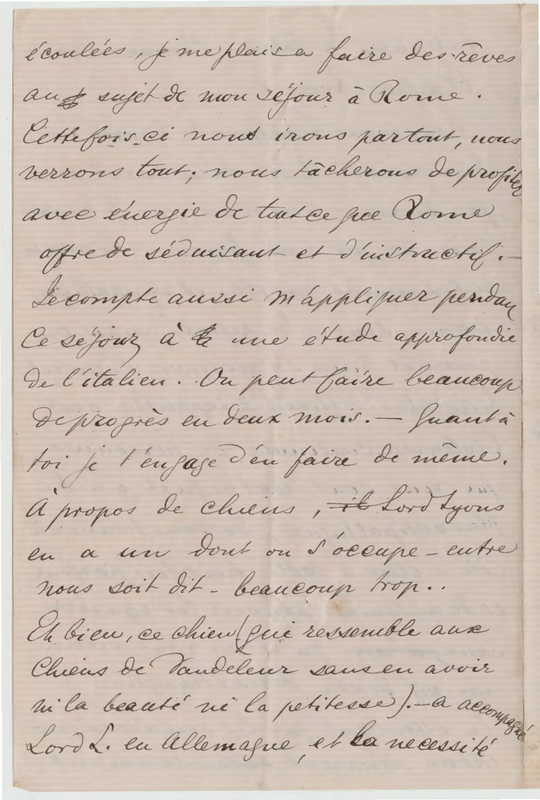 écoulées, je me plais a faire des rêves
au sujèt de mon séjour à Rome.
Cette fois-ci nous irons partout, nous
verrons tout; nous tâcherons de profiter
avec énergie de tout ce que Rome
offre de séduisant et d'instructif. —
Je compte aussi m'appliquer pendant
ce séjour à une étude approfondie
de l'italien. On peut faire beaucoup
de progrès en deux mois. — Quant à
toi je t'engage d'en faire de même.
À propos de chiens, Lord Lyons
en a un dont on s'occupe — entre
nous soit dit — beaucoup trop..
Eh bien, ce chien (qui ressemble aux
chiens de Vandeleur sans en avoir
ni la beauté ni la petitesse). — a accompagné
Lord L. en Allemagne, et la necessité